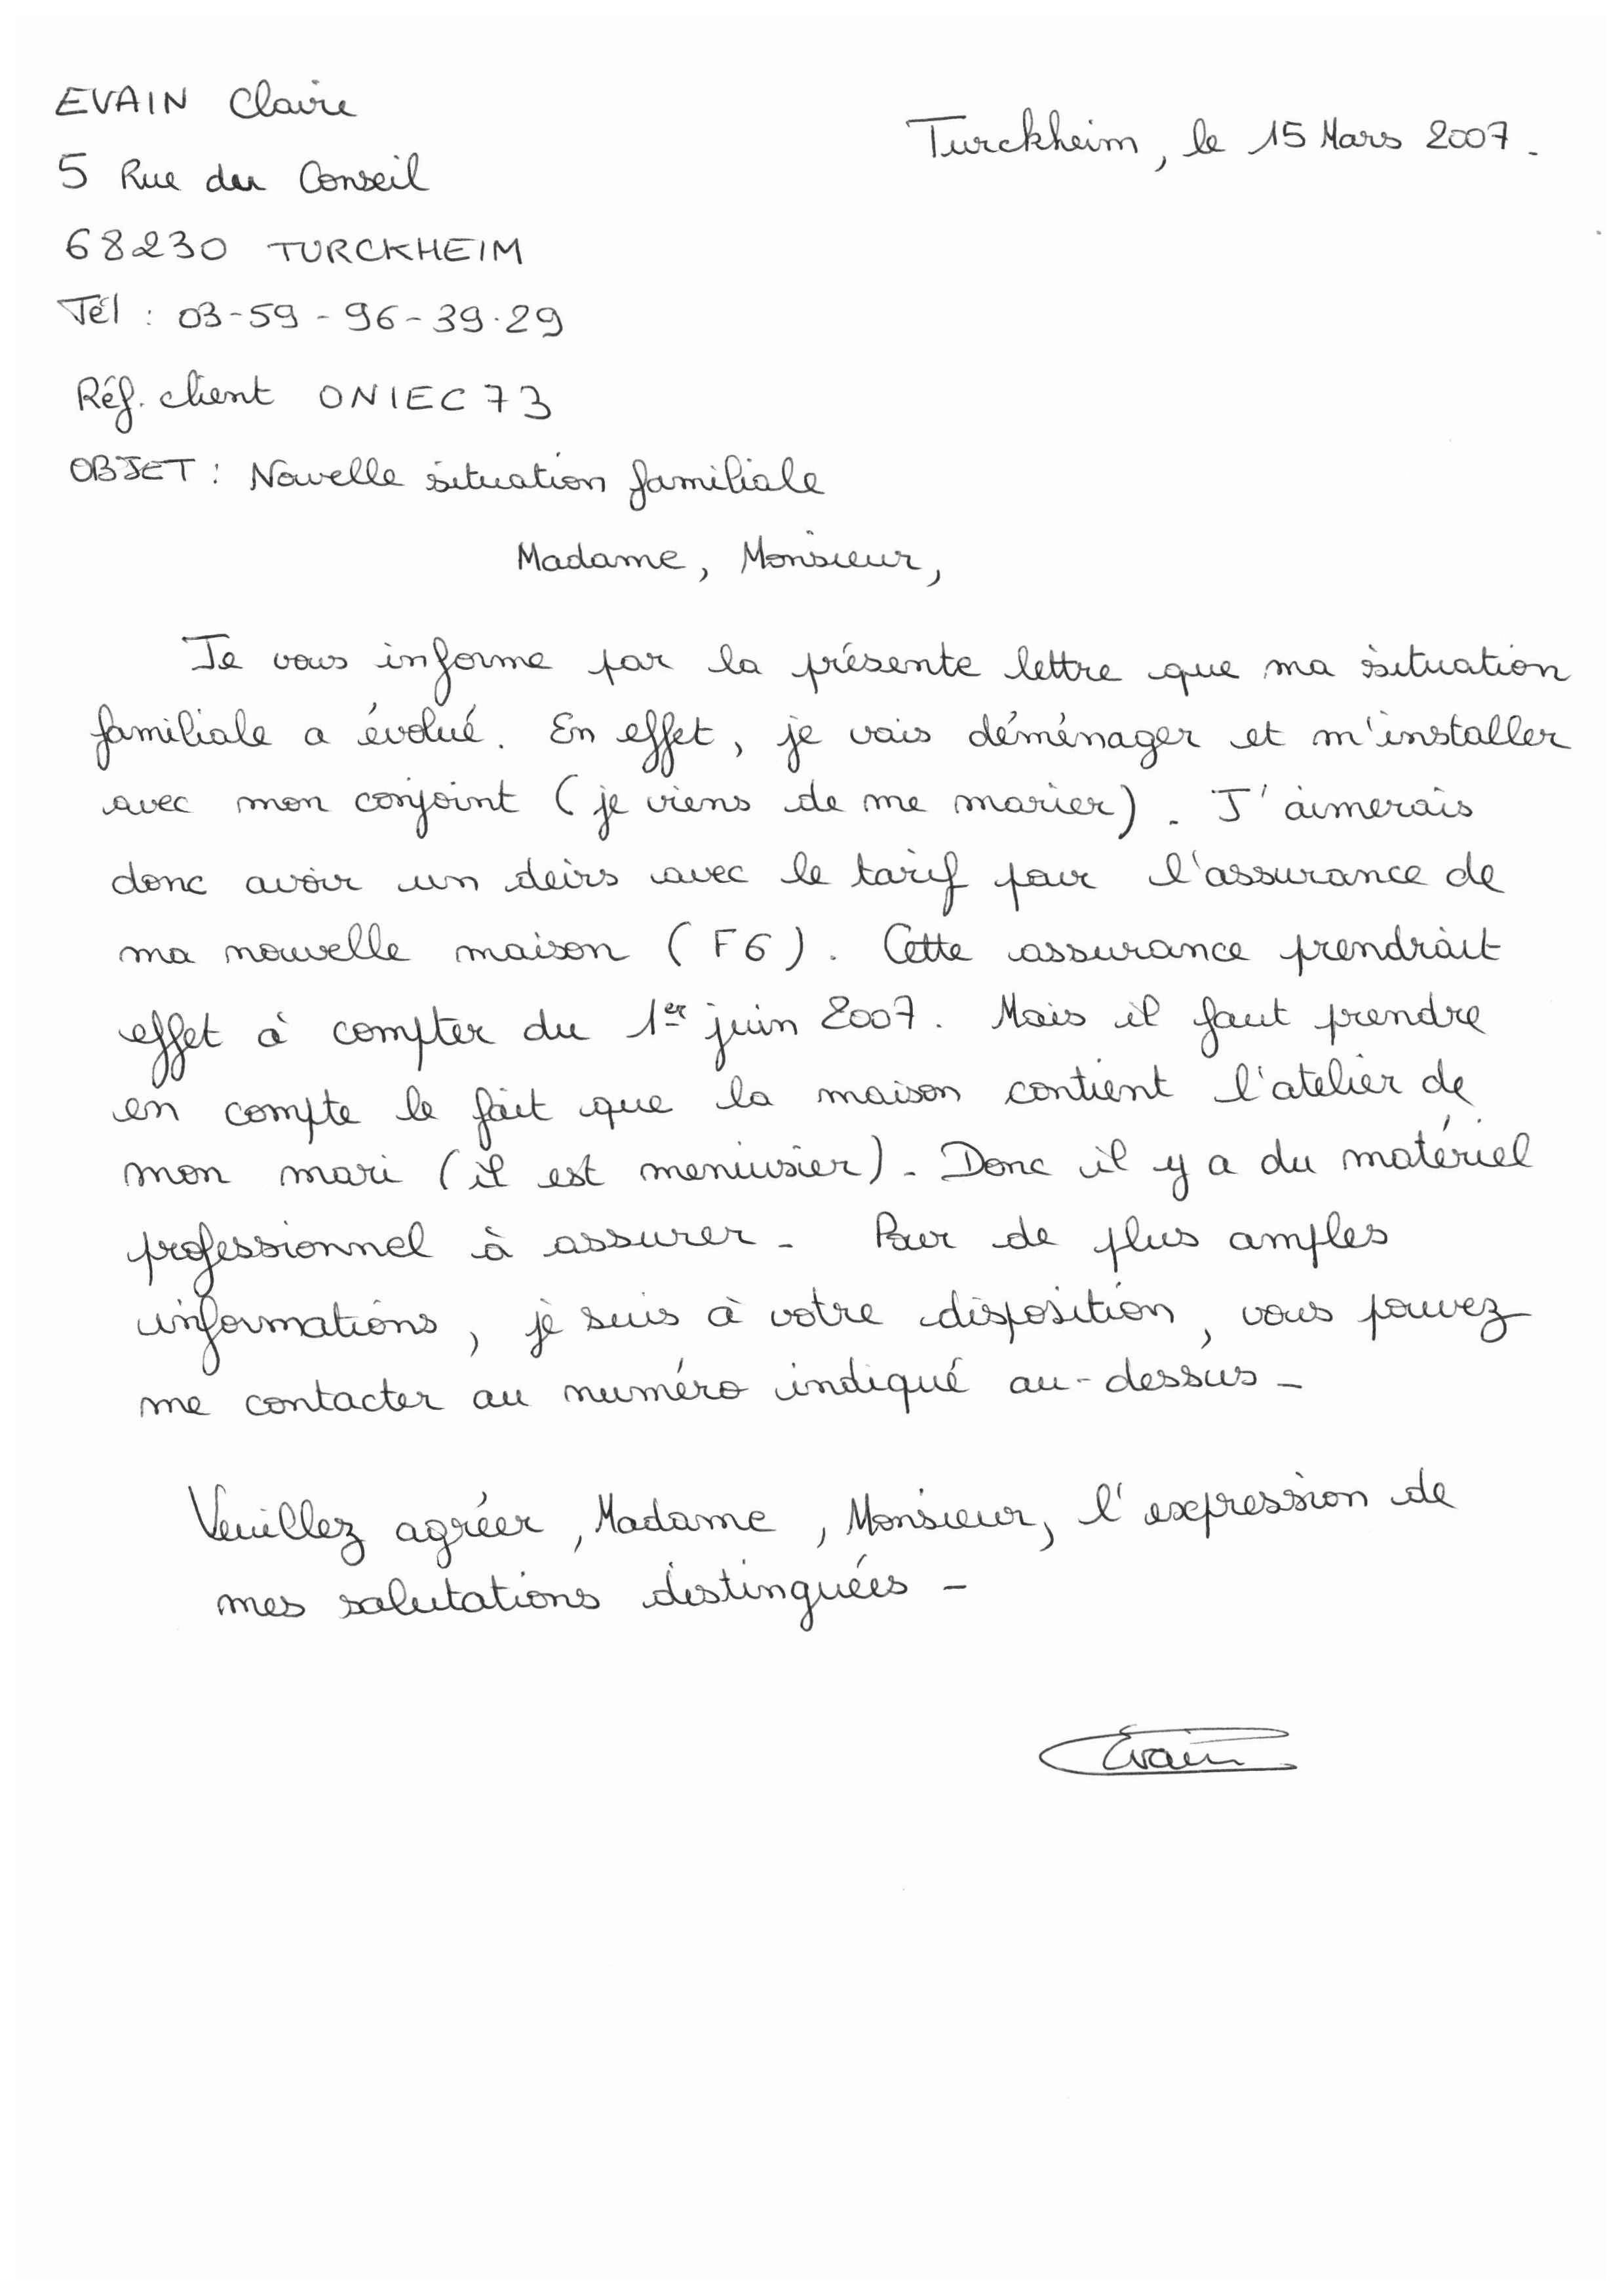 EVAIN Claire
Turckheim, le 15 Mars 2007.
5 Rue du Conseil
68230 TURCKHEIM
Tél : 03-59-96-39-29
Réf. client ONIEC73
OBJET : Nouvelle situation familiale
Madame, Monsieur,
Je vous informe par la présente lettre que ma situation
familiale a évolué. En effet, je vais déménager et m'installer
avec mon conjoint (je viens de me marier). J'aimerais
donc avoir un deirs avec le tarif pour l'assurance de
ma nouvelle maison (F6). Cette assurance prendrait
effet à compter du 1er juin 2007. Mais il faut prendre
en compte le fait que la maison contient l'atelier de
mon mari (il est meniusier). Donc il y a du matériel
professionnel à assurer. Pour de plus amples
informations, je suis à votre disposition, vous pouvez
me contacter au numéro indiqué au-dessus.
Veuillez agréer, Madame, Monsieur, l'expression de
mes salutations distinguées.
Evain